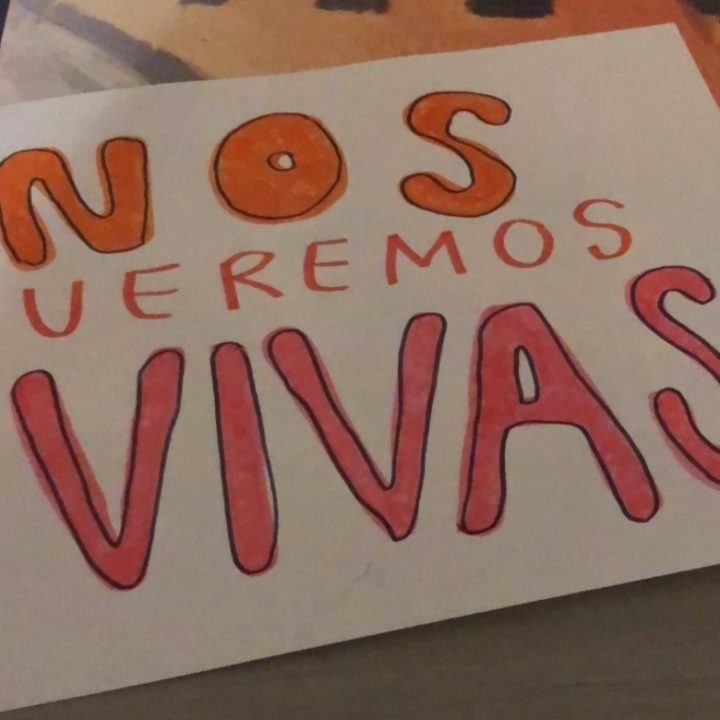 NOS
UEREMOS
VIVAS